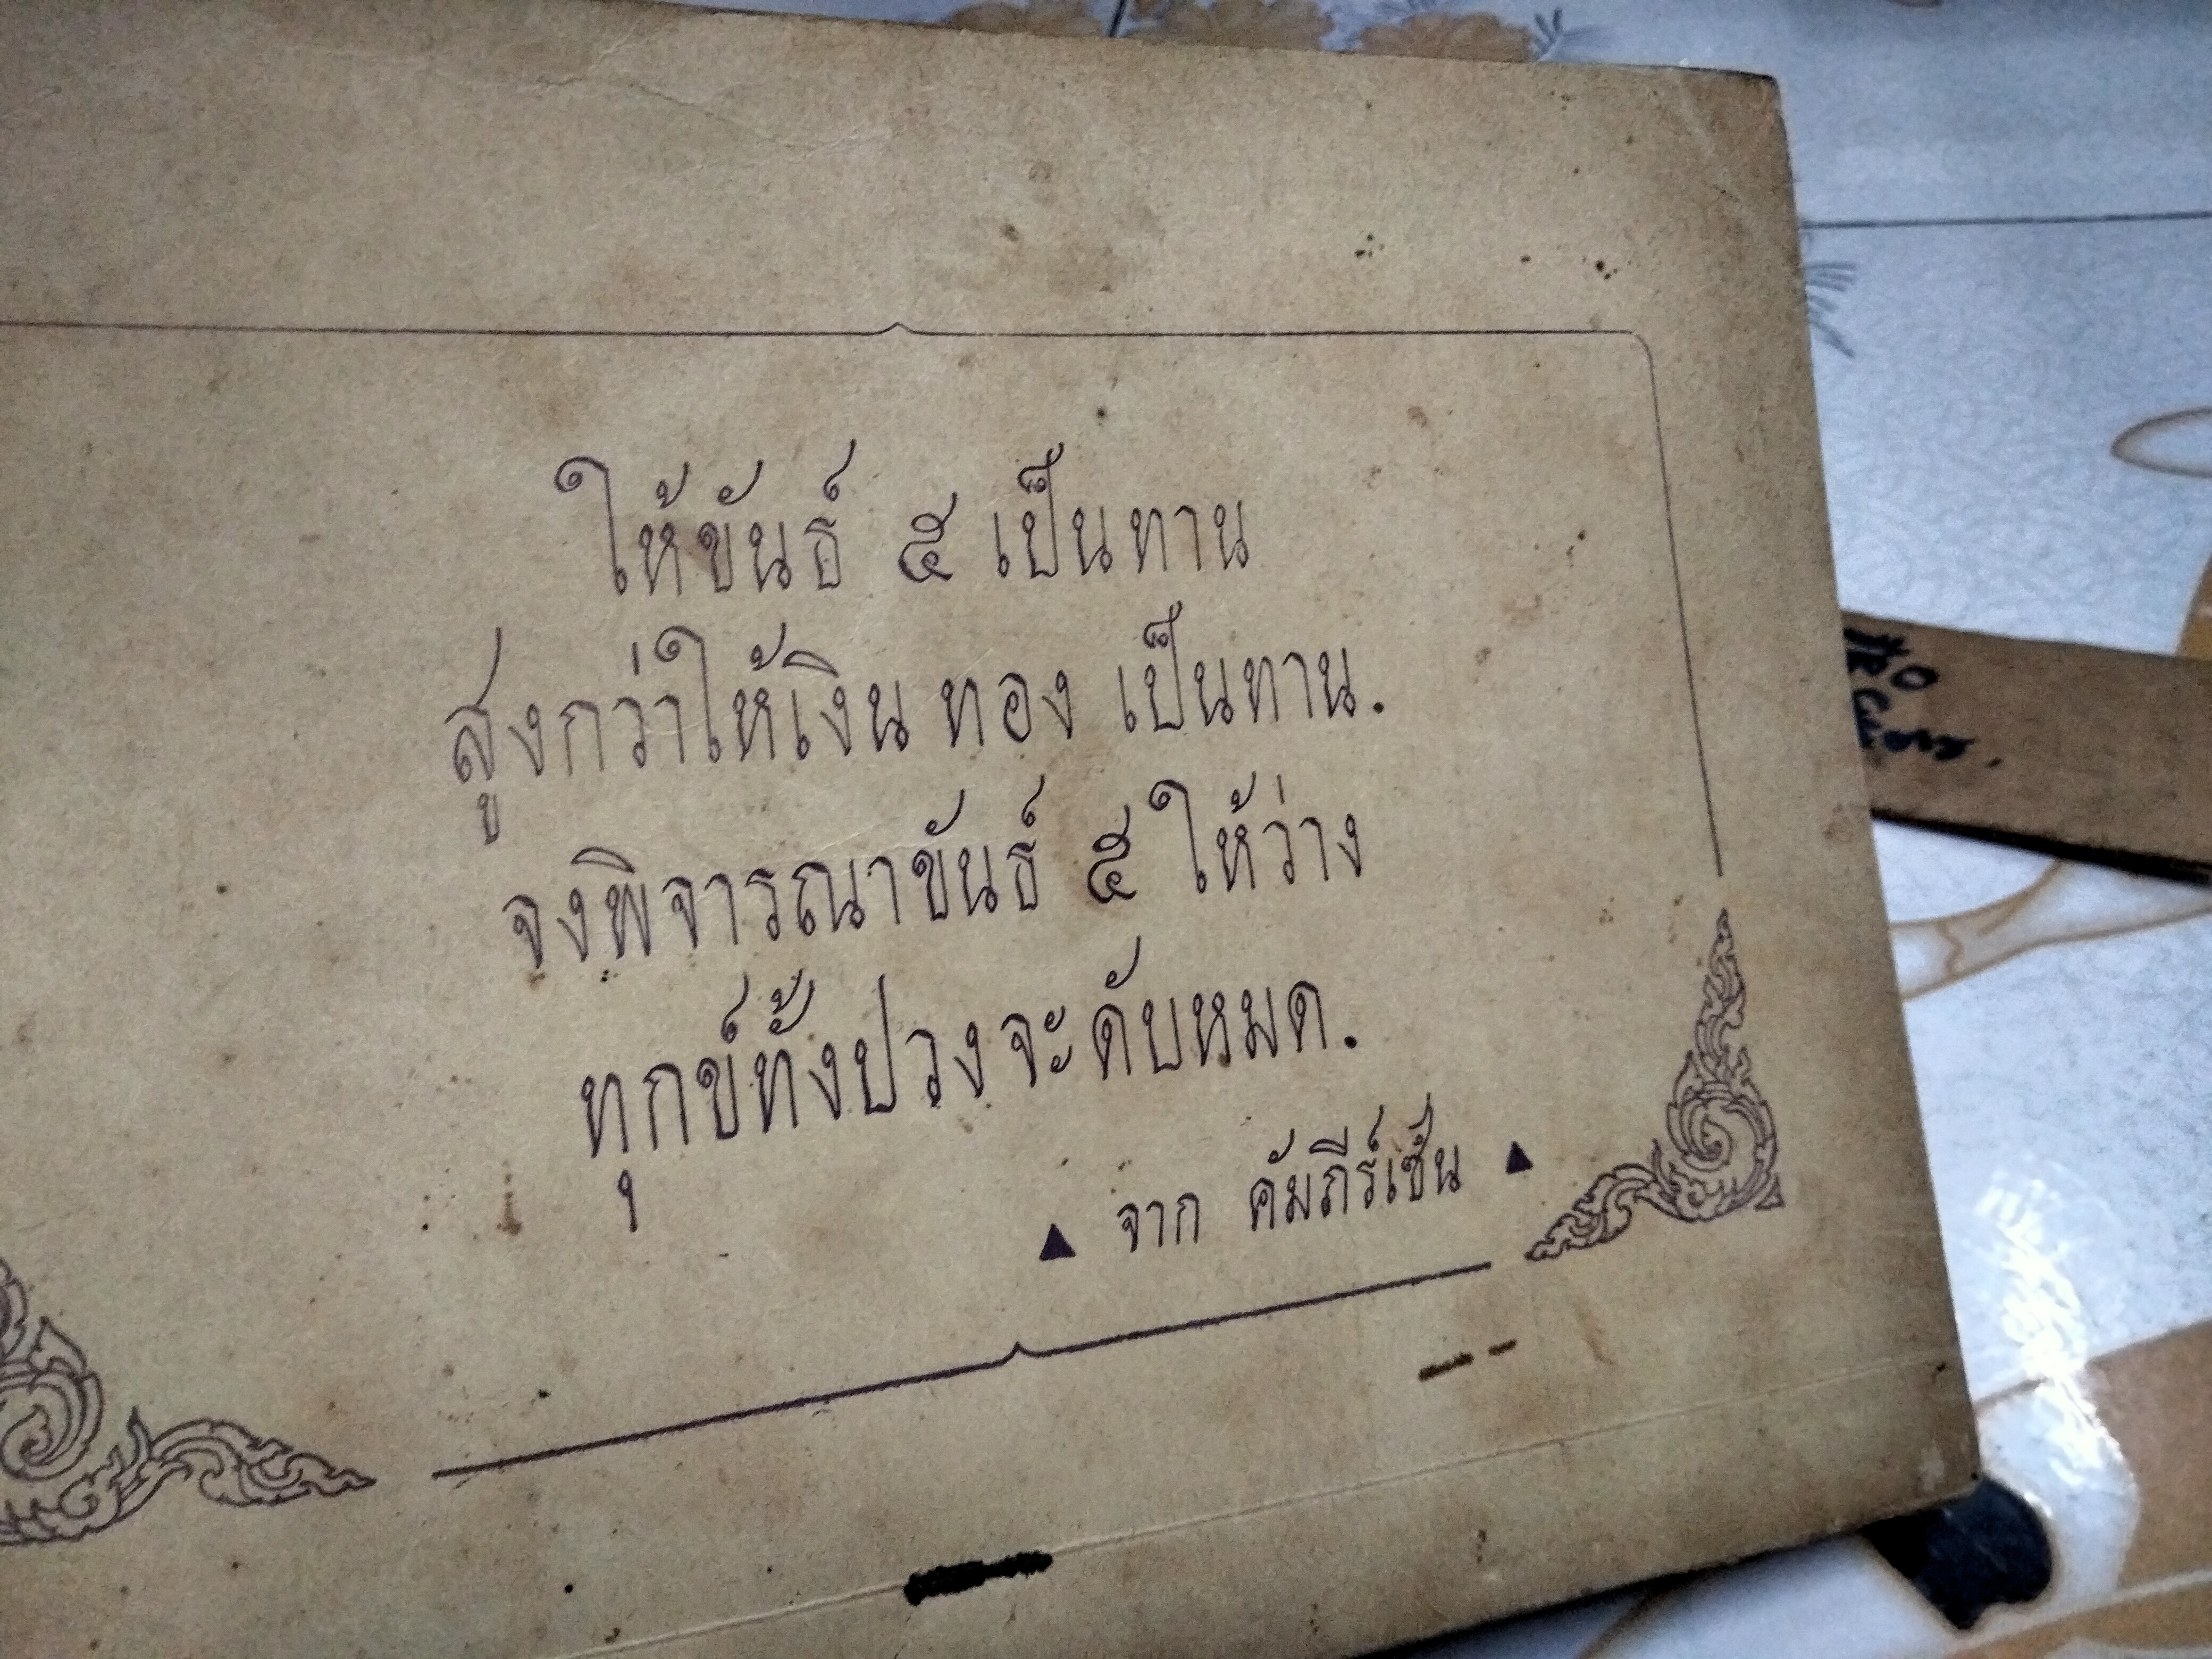 ให้ขันธ์ ๕ เป็นทาน
สูงกว่าให้เงิน ทอง เป็นทาน.
จงพิจารณาขันธ์ ๕ ให้ว่าง
ทุกข์ทั้งปวงจะดับหมด.
▲ จาก คัมภีร์เซ็น ▲